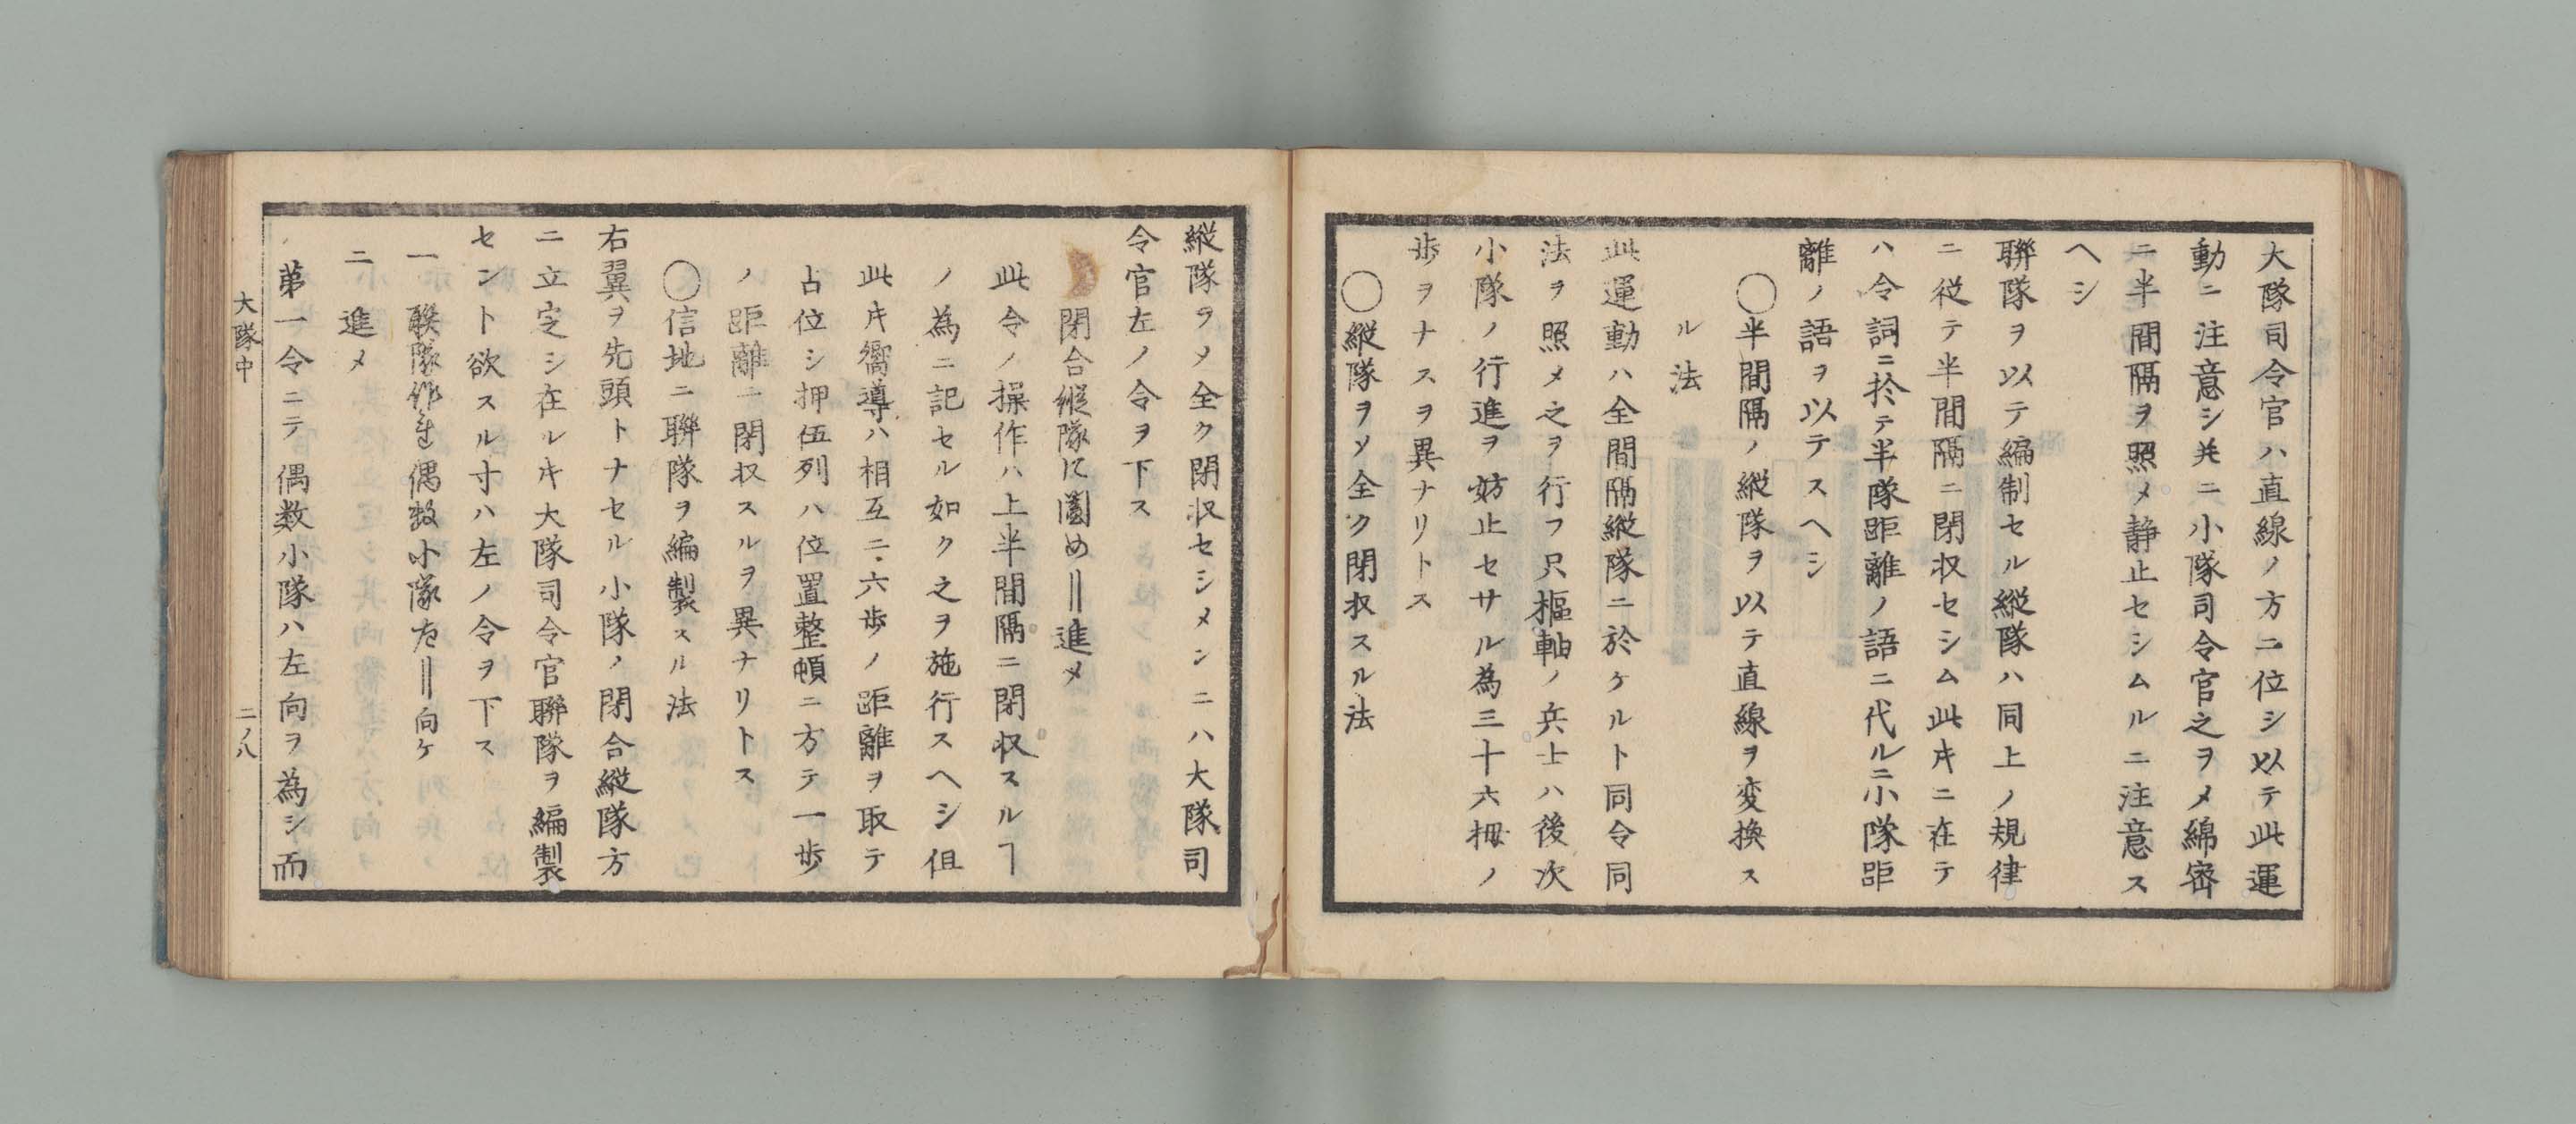 大隊司令官ハ直線ノ方ニ位シ以テ此運
動ニ注意シ共ニ小隊司令官之ヲメ綿密
ニ半間隔ヲ照メ静止セシムルニ注意ス
ヘシ
聯隊ヲ以テ編制セル縦隊ハ同上ノ規律
ニ従テ半間隔ニ閉収セシム此キニ在テ
ハ令詞ニ於テ半隊距離ノ語ニ代ルニ小隊距
離ノ語ヲ以テスヘシ
〇半間隔ノ縦隊ヲ以テ直線ヲ変換ス
ル法
此運動ハ全間隔縦隊ニ於ケルト同令同
法ヲ照メ之ヲ行フ只樞軸ノ兵士ハ後次
小隊ノ行進ヲ妨止セサル為三十六拇ノ
歩ヲナスヲ異ナリトス
〇縦隊ヲソ全ク閉収スル法
縦隊ヲメ全ク閉収セシメンニハ大隊司
令官左ノ令ヲ下ス
閉合縦隊に圖め‖進メ
此令ノ操作ハ上半間隔ニ閉収スルヿ
ノ為ニ記セル如ク之ヲ施行スヘシ但
此キ嚮導ハ相互ニ六歩ノ距離ヲ取テ
占位シ押伍列ハ位置整頓ニ方テ一歩
ノ距離ニ閉収スルヲ異ナリトス
〇信地ニ聯隊ヲ編製スル法
右翼ヲ先頭トナセル小隊ノ閉合縦隊方
ニ立定シ在ルキ大隊司令官聯隊ヲ編製
セント欲スル寸ハ左ノ令ヲ下ス
一 聯隊作れ偶数小隊左‖向ケ
ニ 進メ
第一令ニテ偶数小隊ハ左向ヲ為シ而
大隊中 二ノ八